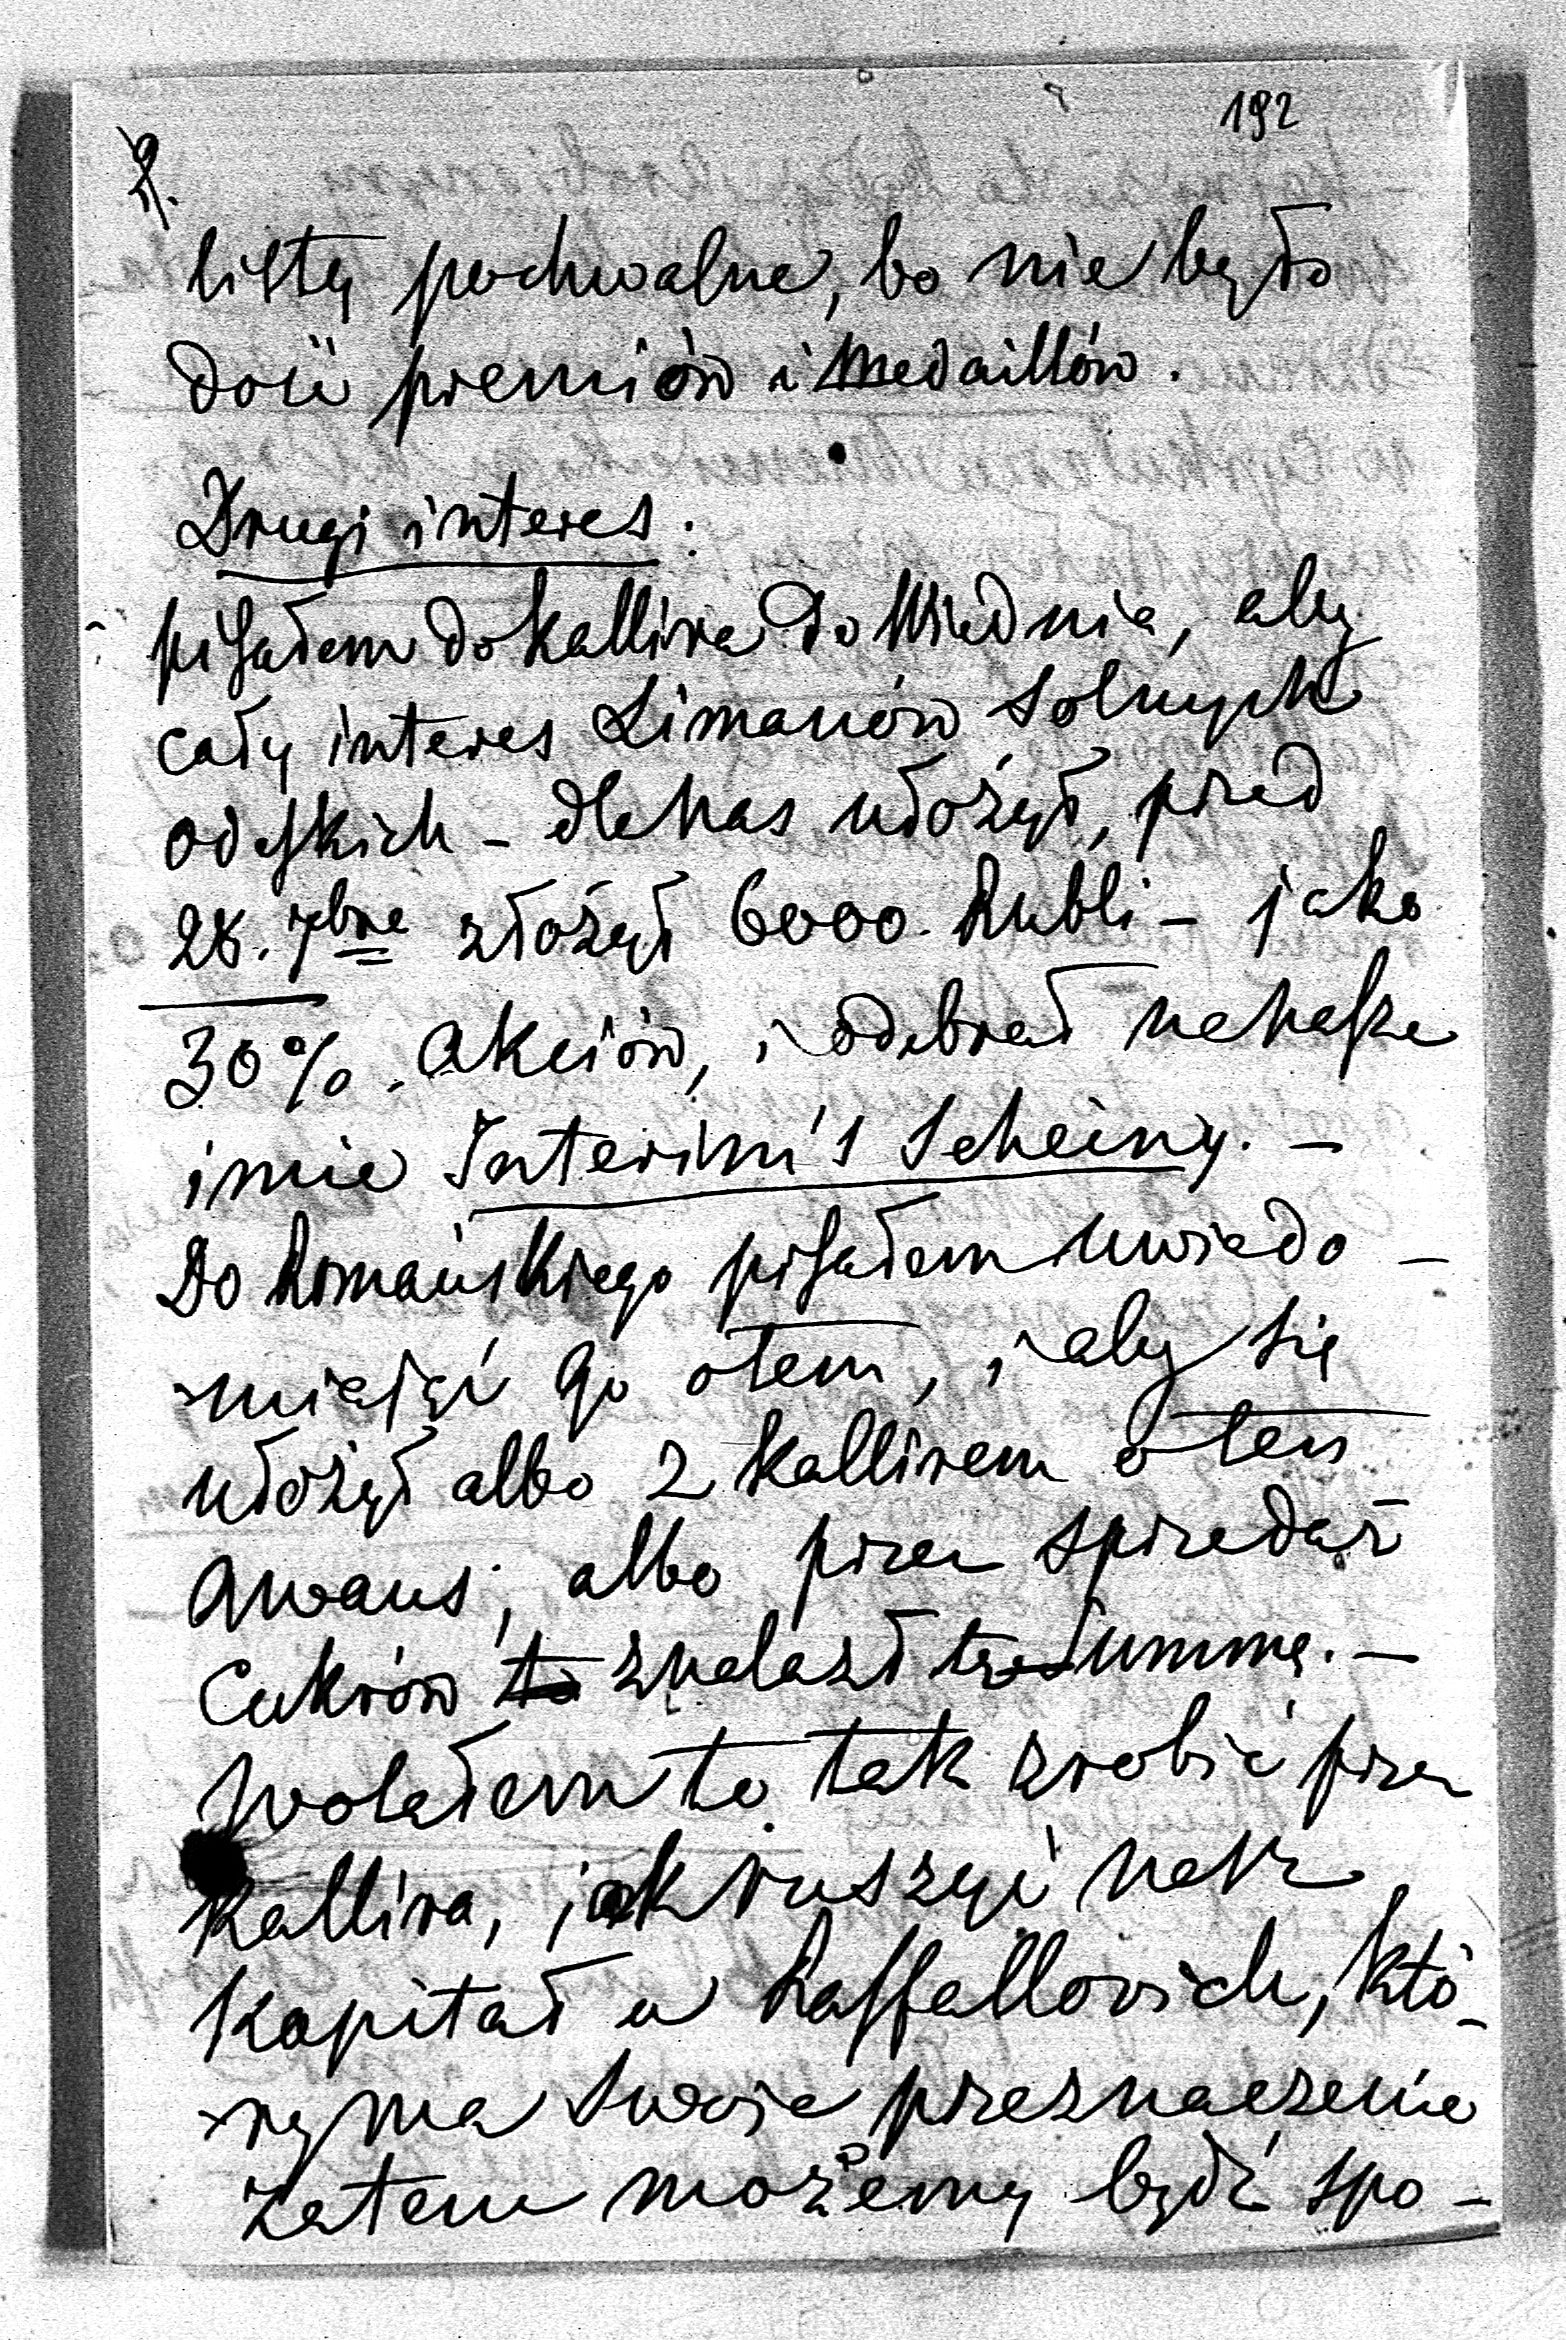 192
2.
listy pochwalne, bo nie było
dość premiów i Medaillów.
Drugi interes:
pisałem do Kallira do Wiednia, aby
cały interes Limanów Solnych
odesskich - dla nas ułożył, przed
28. 7bre złożył 6000. Rubli - jako
30%. Akciów, i odebrał na nasze
imie Interim's Scheiny. -
Do Romańskiego pisałem uwiado-
miając go o tem, i aby się
ułożył albo z Kallirem o ten
Awans, albo przez sprzedaż
Cukrów to znalazł tę Summę. -
Wolałem to tak zrobić przez
Kallira, jak ruszyć nasz
Kapitał u Raffallovich, któ-
ry ma swoje przeznaczenie
Zatem możemy bydź spo-